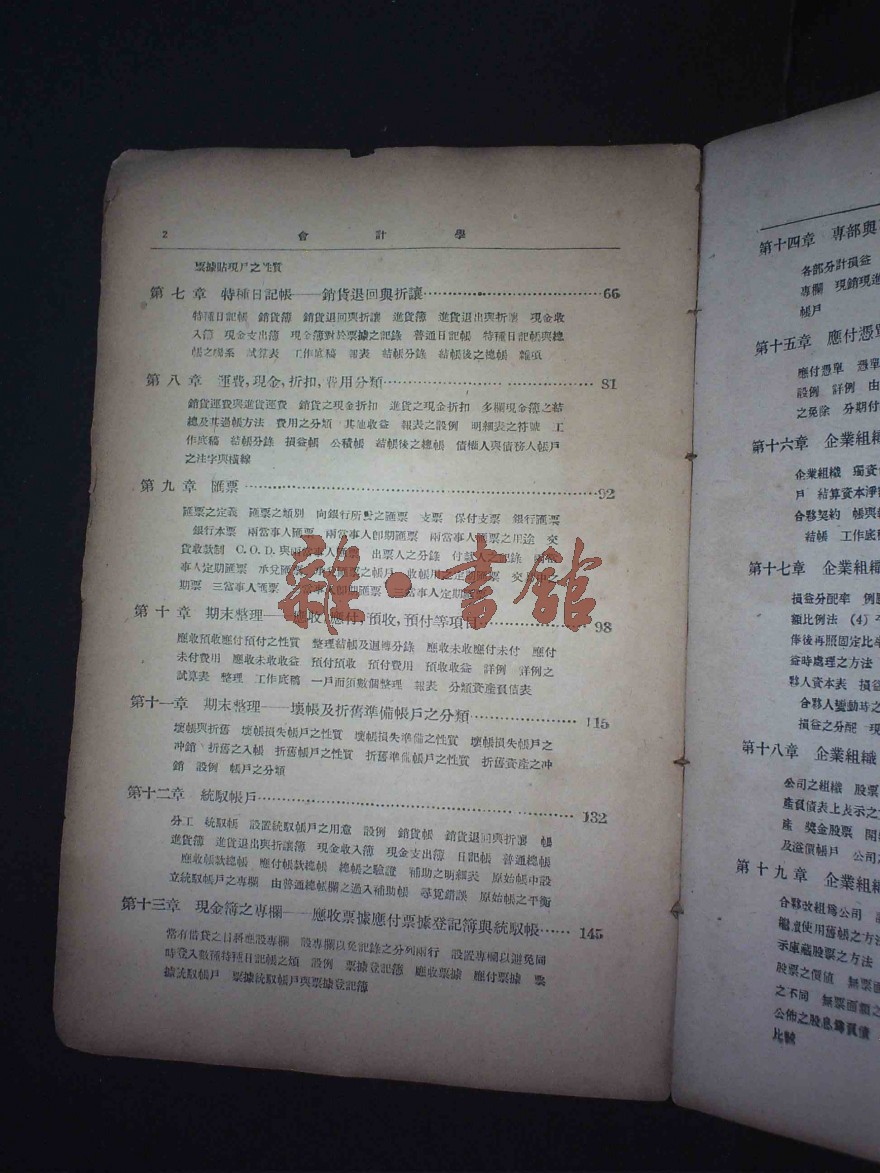 2 會計學
票據貼現戶之性質
第七章 特種日記帳——銷貨退回與折讓 66
特種日記帳 銷貨簿 銷貨退回與折讓 進貨簿 進貨退出與折讓 現金收
入簿 現金支出簿 現金簿對於票據之記錄 普通日記帳 特種日記帳與總
帳之關系 試算表 工作底稿 報表 結帳分錄 結帳後之總帳 雜項
第八章 運費,現金,折扣,費用分類 81
銷貨運費與進貨運費 銷貨之現金折扣 進貨之現金折扣 多欄現金簿之結
總及其過帳方法 費用之分類 其他收益 報表之設例 明細表之符號 工
作底稿 結帳分錄 損益帳 公積帳 結帳後之總帳 債權人與債務人帳戶
之法字與橫線
第九章 匯票 92
匯票之定義 匯票之類別 向銀行所發之匯票 支票 保付支票 銀行匯票
銀行本票 兩當事人匯票 兩當事人卽期匯票 兩當事人匯票之用途 交
貨收款制 C.O.D.與兩當事人匯票 出票人之分錄 付款人之記錄 兩當
事人定期匯票 承兌匯票 承兌匯票之帳戶 收帳用之定期匯票 交易中之
期票 三當事人匯票 三當事人卽期匯票 三當事人定期匯票
第十章 期末整理——應收,應付,預收,預付等項目 98
應收預收應付預付之性質 整理結帳及迴轉分錄 應收未收應付未付 應付
未付費用 應收未收收益 預付預收 預付費用 預收收益 詳例 詳例之
試算表 整理 工作底稿 一戶而須數個整理 報表 分類資產負債表
第十一章 期末整理——壞帳及折舊準備帳戶之分類 115
壞帳與折舊 壞帳損失帳戶之性質 壞帳損失準備之性質 壞帳損失帳戶之
冲銷 折舊之入帳 折舊帳戶之性質 折舊準備帳戶之性質 折舊資產之冲
銷 設例 帳戶之分類
第十二章 統馭帳戶 132
分工 統馭帳 設置統馭帳戶之用意 設例 銷貨帳 銷貨退回與折讓 帳
進貨簿 進貨退出與折讓簿 現金收入簿 現金支出簿 日記帳 普通總帳
應收帳款總帳 應付帳款總帳 總帳之驗證 補助之明細表 原始帳中設
立統馭帳戶之專欄 由普通總帳欄之過入補助帳 尋覓錯誤 原始帳之平衡
第十三章 現金簿之專欄——應收票據應付票據登記簿與統馭帳 145
常有借貸之目科應設專欄 設專欄以免記錄之分列兩行 設置專欄以避免同
時登入數種特種日記帳之煩 設例 票據登記簿 應收票據 應付票據 票
據統馭帳戶 票據統馭帳戶與票據登記簿
雜·書館
第十四章 專部與
各部分計損益
專欄 現銷現進
帳戶
第十五章 應付憑單
應付憑單 憑單
設例 詳例 由
之免除 分期付
第十六章 企業組織
企業組織 獨資
戶 結算資本淨
合夥契約 帳與
結帳 工作底
第十七章 企業組織
損益分配率 例
額比例法 (4)
俸後再照固定比率
益時處理之方法
夥人資本表 損益
合夥人變動時之
損益之分配 現
第十八章 企業組織
公司之組織 股票
產負債表上表示之
產 獎金股票 開
及溢價帳戶 公司
第十九章 企業組織
合夥改組爲公司
繼續使用舊帳之方
示庫藏股票之方法
股票之價值 無票面
之不同 無票面額之
公佈之股息爲負債
比較